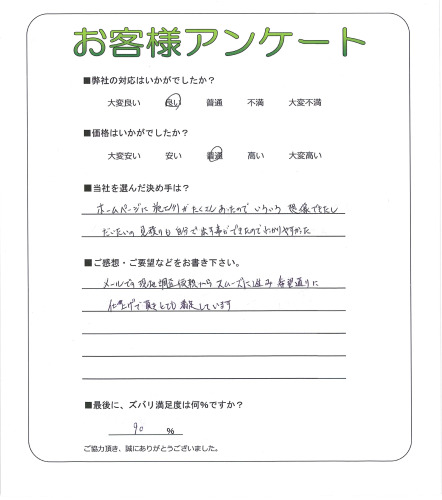 お客様アンケート
■弊社の対応はいかがでしたか？
大変良い 良い 普通 不満 大変不満
■価格はいかがでしたか？
大変安い 安い 普通 高い 大変高い
■当社を選んだ決め手は？
ホームページに施工例がたくさんあったのでいろいろ想像できたし
だいたいの見積りも自分で出す事ができたのでわかりやすかった
■ご感想・ご要望などをお書き下さい。
メールでの現地調査依頼からスムーズに進み希望通りに
仕上げて頂きとても満足しています
■最後に、ズバリ満足度は何%ですか？
90 %
ご協力頂き、誠にありがとうございました。